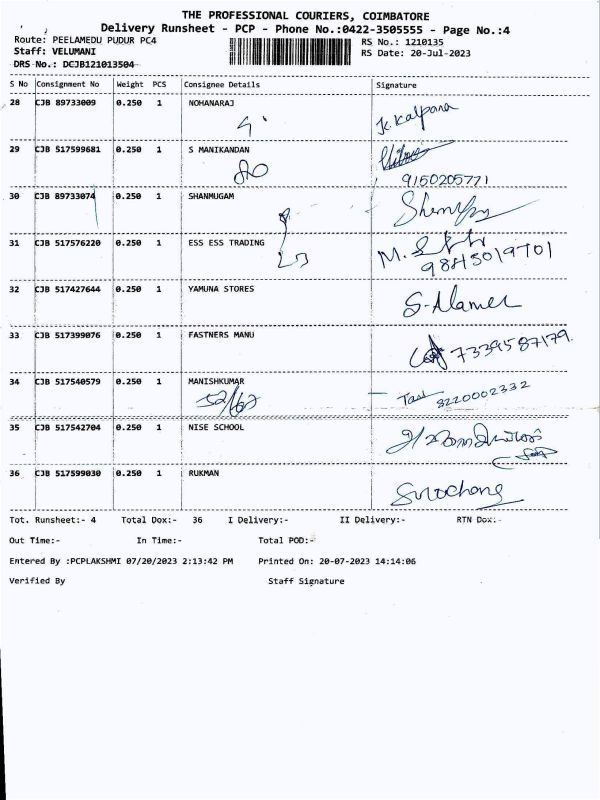 THE PROFESSIONAL COURIERS, COIMBATORE
Delivery Runsheet - PCP - Phone No.:0422-3505555 - Page No.:4
Route: PEELAMEDU PUDUR PC4 RS No.: 1210135
Staff: VELUMANI RS Date: 20-Jul-2023
DRS No.: DCJB121013504
S No Consignment No Weight PCS Consignee Details Signature
28 CJB 89733009 0.250 1 NOHANARAJ K. Kalpana
29 CJB 517599681 0.250 1 S MANIKANDAN
9150205771
30 CJB 89733074 0.250 1 SHANMUGAM
31 CJB 517576220 0.250 1 ESS ESS TRADING
9843019701
32 CJB 517427644 0.250 1 YAMUNA STORES
33 CJB 517399076 0.250 1 FASTNERS MANU 7339587179
34 CJB 517540579 0.250 1 MANISHKUMAR
52/67 8220002332
35 CJB 517542704 0.250 1 NISE SCHOOL
36 CJB 517599030 0.250 1 RUKMAN
Tot. Runsheet:- 4 Total Dox:- 36 I Delivery:- II Delivery:- RTN Dox:-
Out Time:- In Time:- Total POD:-
Entered By :PCPLAKSHMI 07/20/2023 2:13:42 PM Printed On: 20-07-2023 14:14:06
Verified By Staff Signature